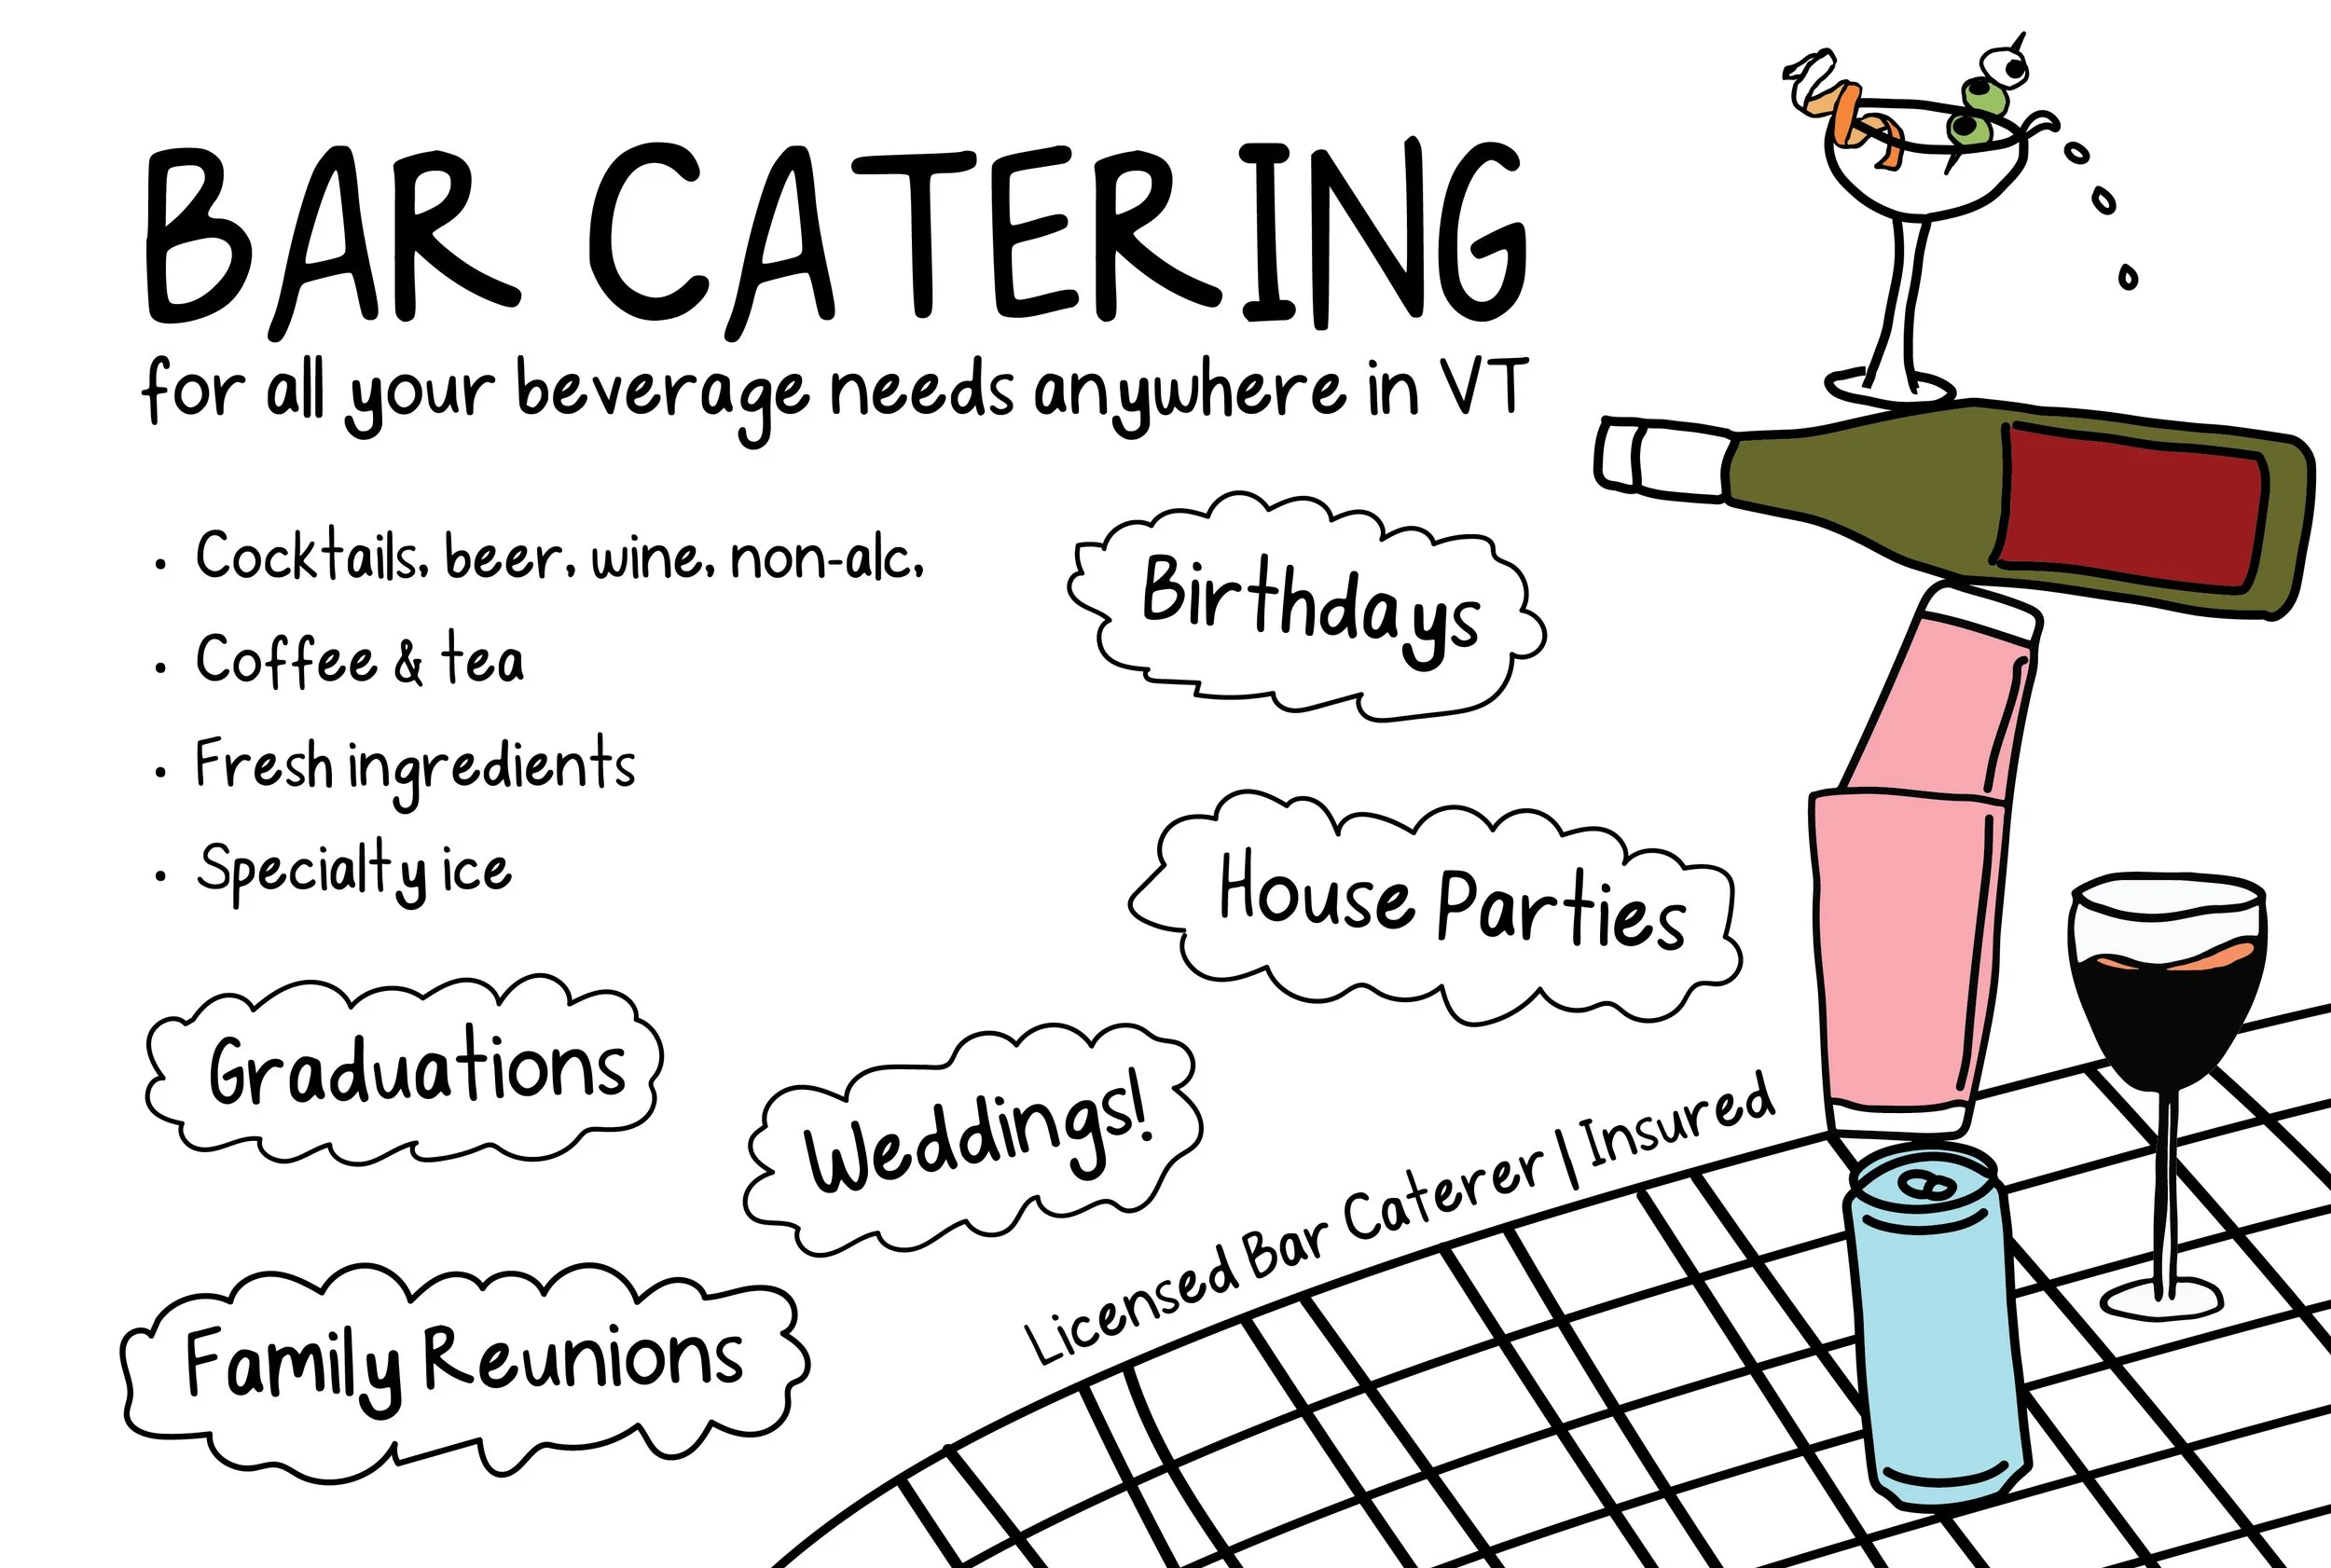 BAR CATERING
for all your beverage needs anywhere in VT
• Cocktails, beer, wine, non-alc,
• Coffee & tea
• Fresh ingredients
• Specialty ice
Birthdays
House Parties
Graduations
Weddings!
Licensed Bar Caterer | Insured
Family Reunions